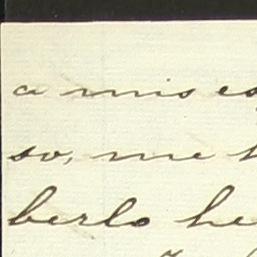 a mis es
so, me
berlo he